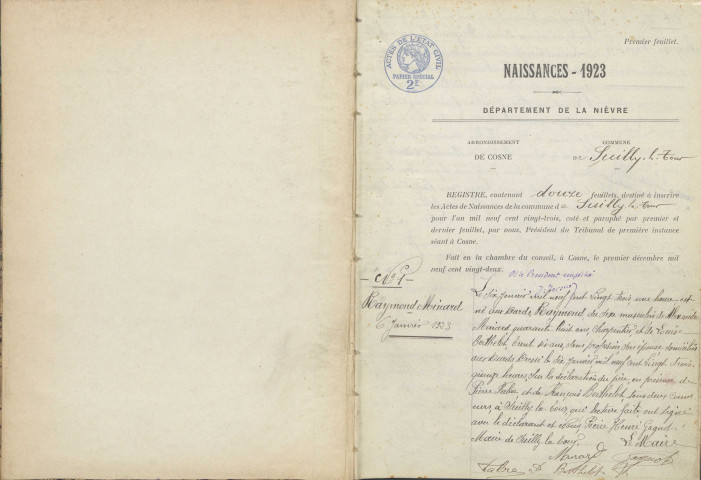 Premier feuillet.
ACTES DE L'ETAT CIVIL
PAPIER SPÉCIAL
2F
NAISSANCES - 1923
DÉPARTEMENT DE LA NIÈVRE
ARRONDISSEMENT
DE COSNE
COMMUNE
DE Suilly-la-Tour
REGISTRE, contenant douze feuillets, destiné à inscrire
les Actes de Naissances de la commune de Suilly-la-Tour
pour l'an mil neuf cent vingt-trois, coté et paraphé par premier et
dernier feuillet, par nous, Président du Tribunal de première instance
séant à Cosne.
Fait en la chambre du conseil, à Cosne, le premier décembre mil
neuf cent vingt-deux.
Le Président empêché
No 1
Raymond Minard
6 Janvier 1923
Le six janvier mil neuf cent vingt trois une heure est
né aux Raymond du sexe masculin de
Minard quarante huit ans, charpentier et de
Berthelot, trente six ans, sans profession, son épouse domiciliés
aux Dressé le dix janvier mil neuf cent vingt trois
quinze heures, sur la déclaration du père, en présence de
Pierre et de François Berthelot, tous deux
à Suilly la tour, qui lecture faite ont signé
avec le déclarant et nous Pierre Henri
Maire de Suilly la tour. Le Maire
Minard
Berthelot